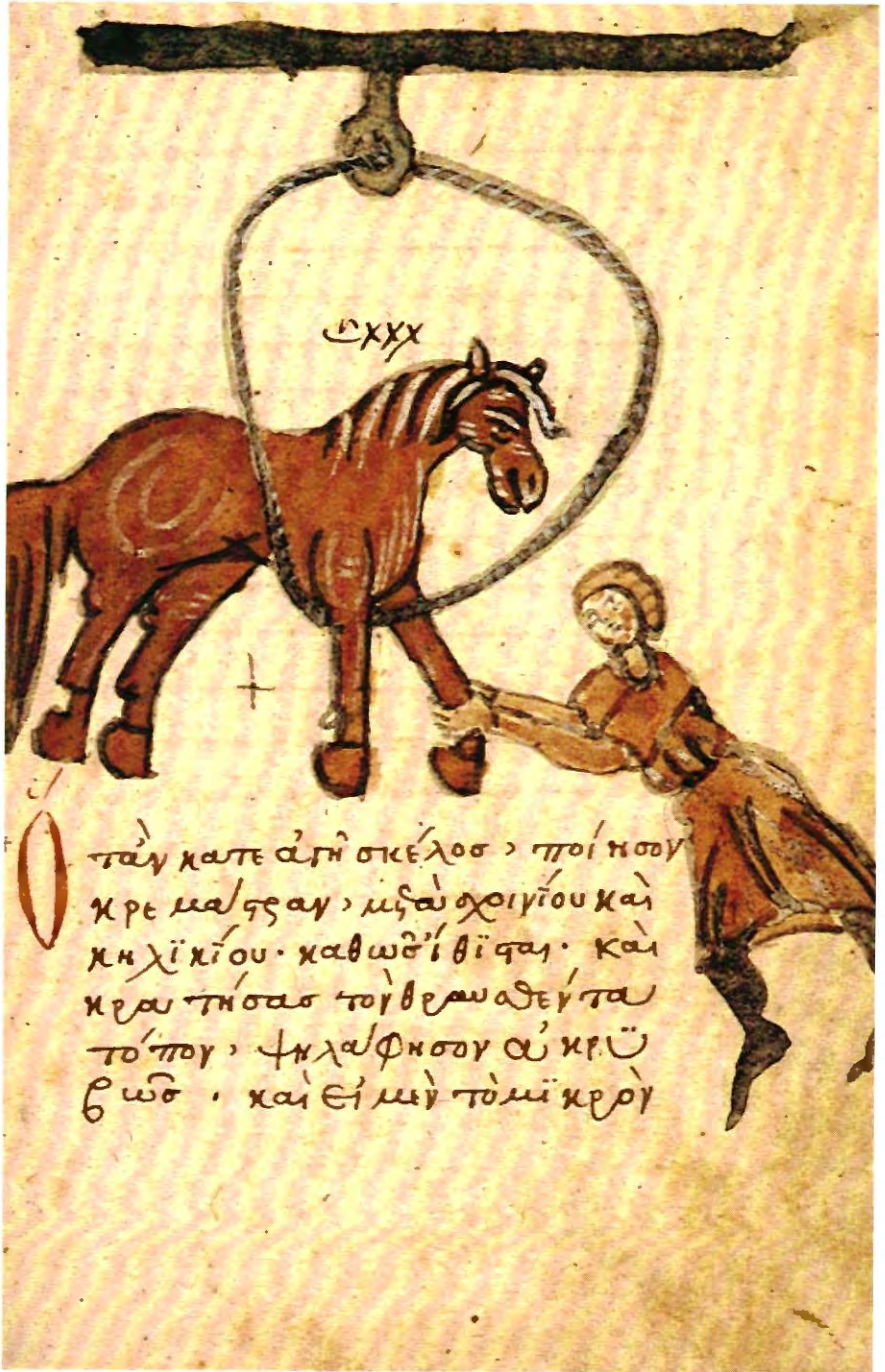 CXXX
Ὁτὰν κατεαγῆ σκέλος, ποίησον
κρεμάστραν, μετὰ σχοινΐου καὶ
κηλϊκΐου· καθὼς εἴθϊσται· καὶ
κρατήσας τὸν θραυσθέντα
τόπον, ψηλάφησον ἀκρϊ
βῶς · καὶ εἰ μὲν τὸ μϊκρὸν